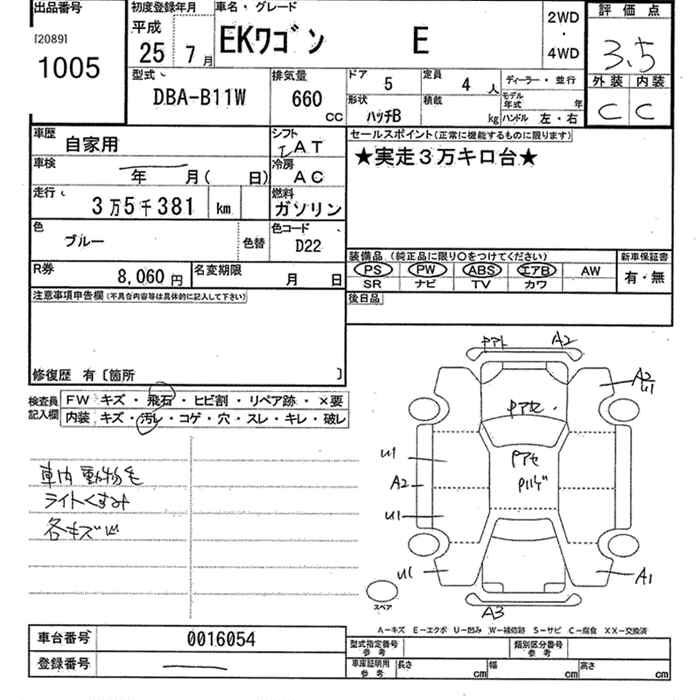 出品番号
[2089]
1005
初度登録年月
平成
25年7月
車名・グレード
EKワゴン E
2WD
・
4WD
評価点
3.5
外装 内装
C C
型式
DBA-B11W
排気量
660
CC
ドア 5
定員 4人
ディーラー・並行
形状 ハッチB
積載 kg
モデル年式 年
ハンドル 左・右
車歴 自家用
シフト IAT
車検 年 月( 日)
冷房 AC
走行 3万5千381 km
燃料 ガソリン
色 ブルー
色替
色コード D22
R券 8,060円
名変期限 月 日
セールスポイント(正常に機能するものに限ります)
★実走3万キロ台★
装備品(純正品に限り○をつけてください)
新車保証書
PS PW ABS エアB AW
SR ナビ TV カワ
有・無
後日品
注意事項申告欄(不具合内容等は具体的に記入して下さい)
修復歴 有〔箇所 〕
検査員記入欄
FW キズ・飛石・ヒビ割・リペア跡・×要
内装 キズ・汚レ・コゲ・穴・スレ・キレ・破レ
車内動物毛
ライトくすみ
各キズ凹
PアトA2
A2
U1
Pアセ
Pアセ
Pハゲ
U1
A2
U1
U1
A1
A3
スペア
A−キズ E−エクボ U−凹み W−補修跡 S−サビ C−腐食 XX−交換済
車台番号 0016054
登録番号
型式指定番号 参考
類別区分番号 参考
車庫証明用 参考
長さ cm
幅 cm
高さ cm